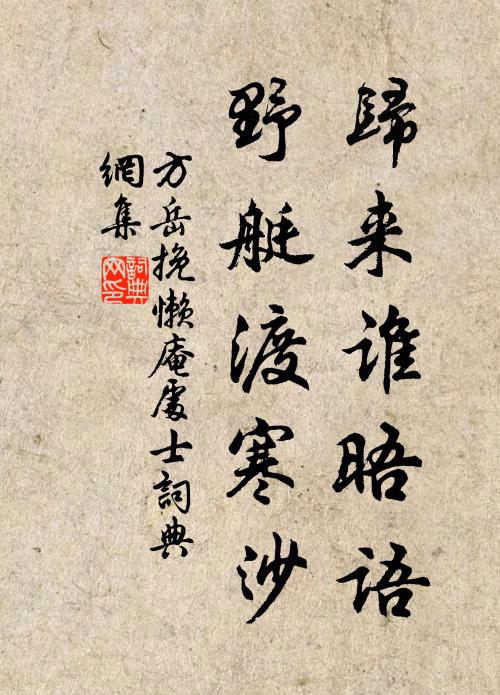 歸来谁晤语
野艇渡寒沙
方岳挽懒庵處士詞典
網集
詞典
网印